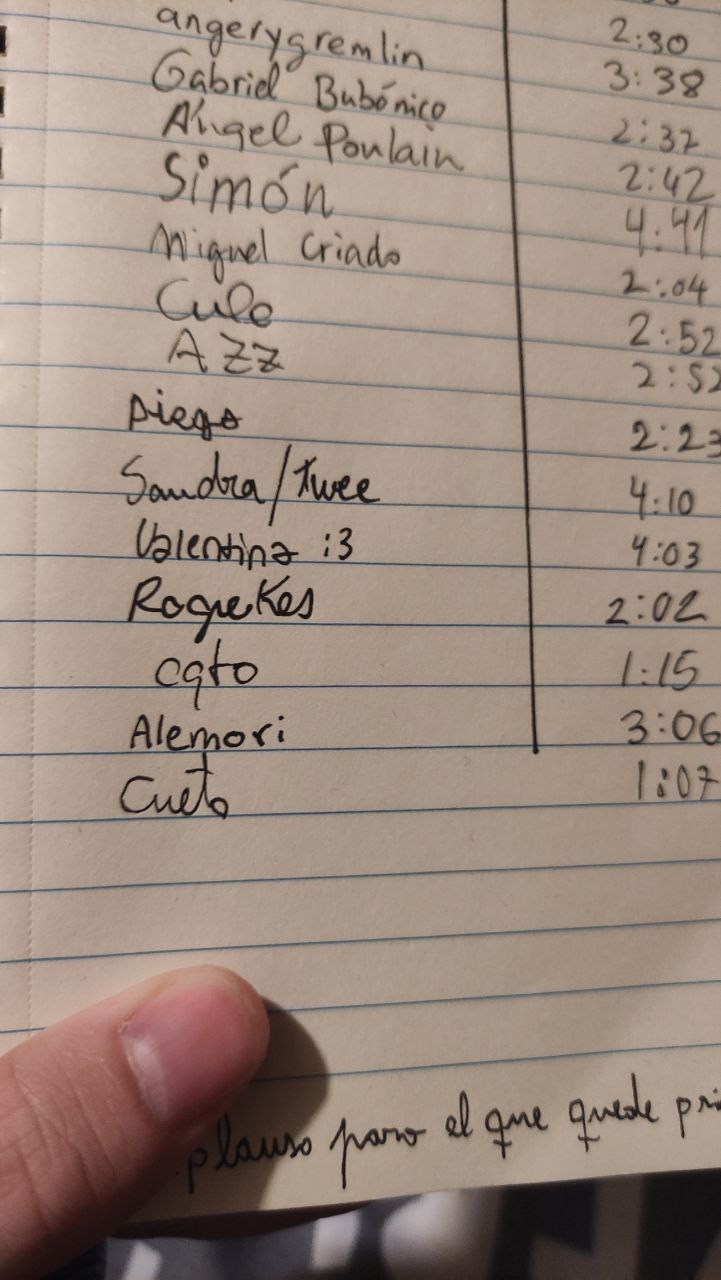 angerygremlin 2:30
Gabriel Bubónico 3:38
Ángel Poulain 2:37
Simón 2:42
Miguel Criado 4:41
Culo 2:04
AZZ 2:52
Diego 2:52
Sandra/twee 2:23
Valentina :3 4:10
RoqueKes 4:03
cqto 2:02
Alemori 1:15
Cueto 3:06
1:07
plauso para el que quede pri